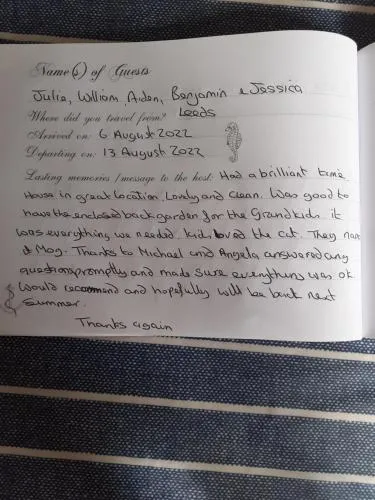 Name(s) of Guests
Julie, William, Aiden, Benjamin & Jessica
Where did you travel from? Leeds
Arrived on: 6 August 2022
Departing on: 13 August 2022
Lasting memories / message to the host: Had a brilliant time
House in great location, Lovely and Clean. Was good to
have the enclosed back garden for the Grandkids. it
was everything we needed. kids loved the cat. They
Mog. Thanks to Michael and Angela answered any
questions promptly and made sure everything was ok
would recommend and hopefully will be back next
Summer.
Thanks again